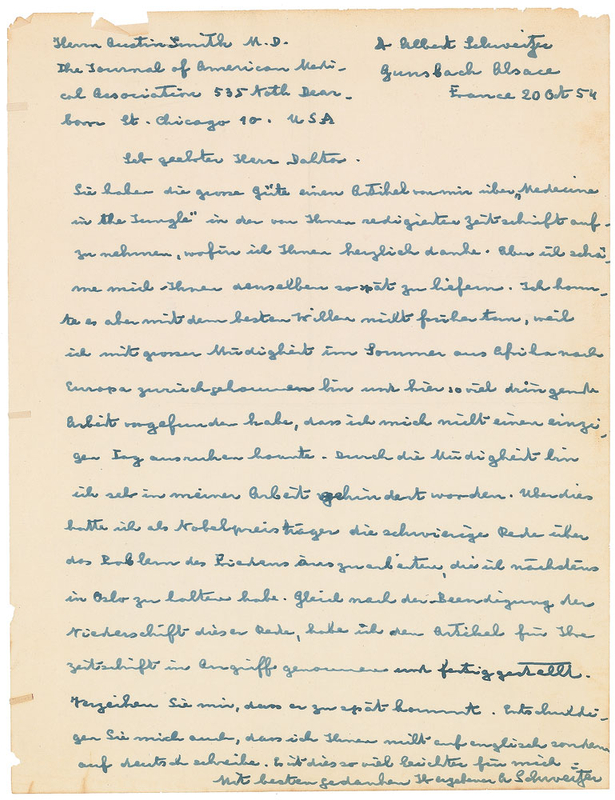 Herrn Austin Smith M.D.
The Journal of American Medi-
cal Association 535 Noth Dear-
born St. Chicago 10. USA
Dr Albert Schweitzer
Gunsbach Alsace
France 20 Oct 54
Seh geehrter Herr Doktor.
Sie haben die grosse Güte einen Artikel von mir über „Medecine
in the Jungle" in der von Ihnen redigierten Zeitschrift auf-
zu nehmen, wofür ich Ihnen herzlich danke. Aber ich schä-
me mich Ihnen denselben so spät zu liefern. Ich konn-
te es aber mit dem besten Willen nicht früher tun, weil
ich mit grosser Müdigkeit im Sommer aus Afrika nach
Europa zurückgekommen bin und hier so viel dringende
Arbeit vorgefunden habe, dass ich mich nicht einen einzi-
gen Tag ausruhen konnte. Durch die Müdigkeit bin
ich seh in meiner Arbeit gehindert worden. Uberdies
hatte ich als Nobelpreisträger die schwierige Rede über
das Problem des Friedens auszuarbeiten, die ich nächstens
in Oslo zu halten habe. Gleich nach der Beendigung der
Niederschift dieser Rede, habe ich den Artikel für Ihre
Zeitschrift in Angriff genommen und fertig gestellt.
Verzeihen Sie mir, dass er zu spät kommt. Entschuldi-
gen Sie mich auch, dass ich Ihnen nicht auf englisch sondern
auf deutsch schreibe. Es ist dies so viel leichter für mich =
Mit besten gedanken Ihr ergebener A Schweitzer